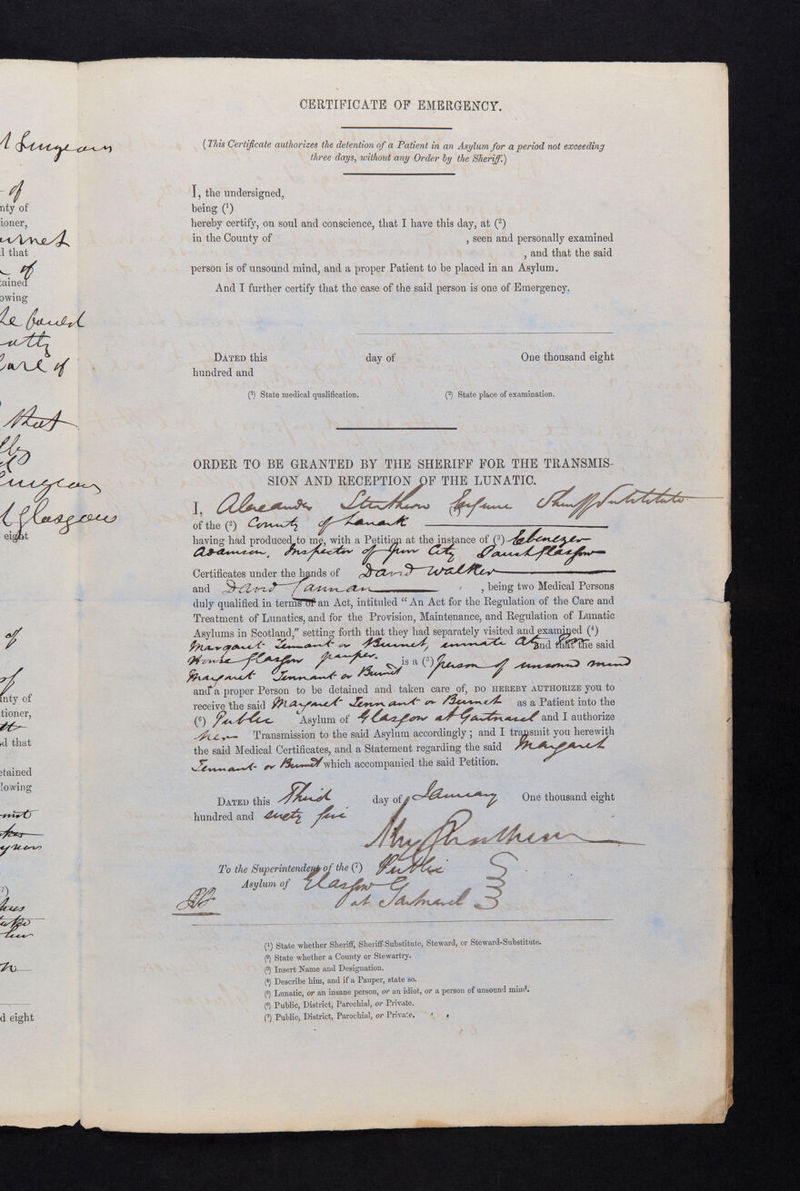 & Surgeon
of
nty of
ioner,
urnet
d that
of
tained
owing
he
atty
care of
that
Surgeon
& Glasgow
eight
of
inty of
tioner,
d that
etained
lowing
d eight
CERTIFICATE OF EMERGENCY.
(This Certificate authorizes the detention of a Patient in an Asylum for a period not exceeding
three days, without any Order by the Sheriff.)
I, the undersigned,
being (¹)
hereby certify, on soul and conscience, that I have this day, at (²)
in the County of , seen and personally examined
, and that the said
person is of unsound mind, and a proper Patient to be placed in an Asylum.
And I further certify that the case of the said person is one of Emergency.
DATED this day of One thousand eight
hundred and
(¹) State medical qualification. (²) State place of examination.
ORDER TO BE GRANTED BY THE SHERIFF FOR THE TRANSMIS-
SION AND RECEPTION OF THE LUNATIC.
I, Alexander Strathern Esquire Sheriff Substitute
of the (²) County of Lanark
having had produced to me, with a Petition at the instance of (³) Ebenezer
Adamson, Inspector of Poor City Parish Glasgow
Certificates under the hands of David Walker
and David , being two Medical Persons
duly qualified in terms of an Act, intituled "An Act for the Regulation of the Care and
Treatment of Lunatics, and for the Provision, Maintenance, and Regulation of Lunatic
Asylums in Scotland," setting forth that they had separately visited and examined (⁴)
Margaret Tennant or Burnet, inmate City Poor and that the said
House Glasgow pauper. is a (⁵) person of unsound mind
Margaret Tennant or Burnet
and a proper Person to be detained and taken care of, DO HEREBY AUTHORIZE you to
receive the said Margaret Tennant or Burnet as a Patient into the
(⁶) Public Asylum of Glasgow at Gartnavel and I authorize
her Transmission to the said Asylum accordingly; and I transmit you herewith
the said Medical Certificates, and a Statement regarding the said Margaret
Tennant or Burnet which accompanied the said Petition.
DATED this Third day of January One thousand eight
hundred and sixty five
Strathern
To the Superintendent of the (⁷) Public
Asylum of Glasgow
at Gartnavel
(¹) State whether Sheriff, Sheriff-Substitute, Steward, or Steward-Substitute.
(²) State whether a County or Stewartry.
(³) Insert Name and Designation.
(⁴) Describe him, and if a Pauper, state so.
(⁵) Lunatic, or an insane person, or an idiot, or a person of unsound mind.
(⁶) Public, District, Parochial, or Private.
(⁷) Public, District, Parochial, or Private.